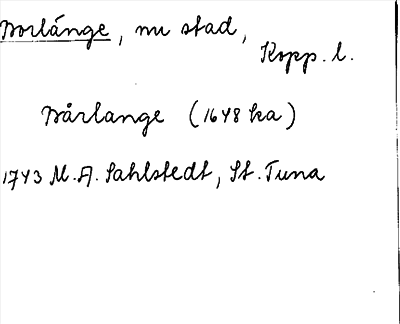 Borlänge, nu stad,
Kopp. l.
Bårlange (1648 ka)
1743 M. A. Sahlstedt, St. Tuna